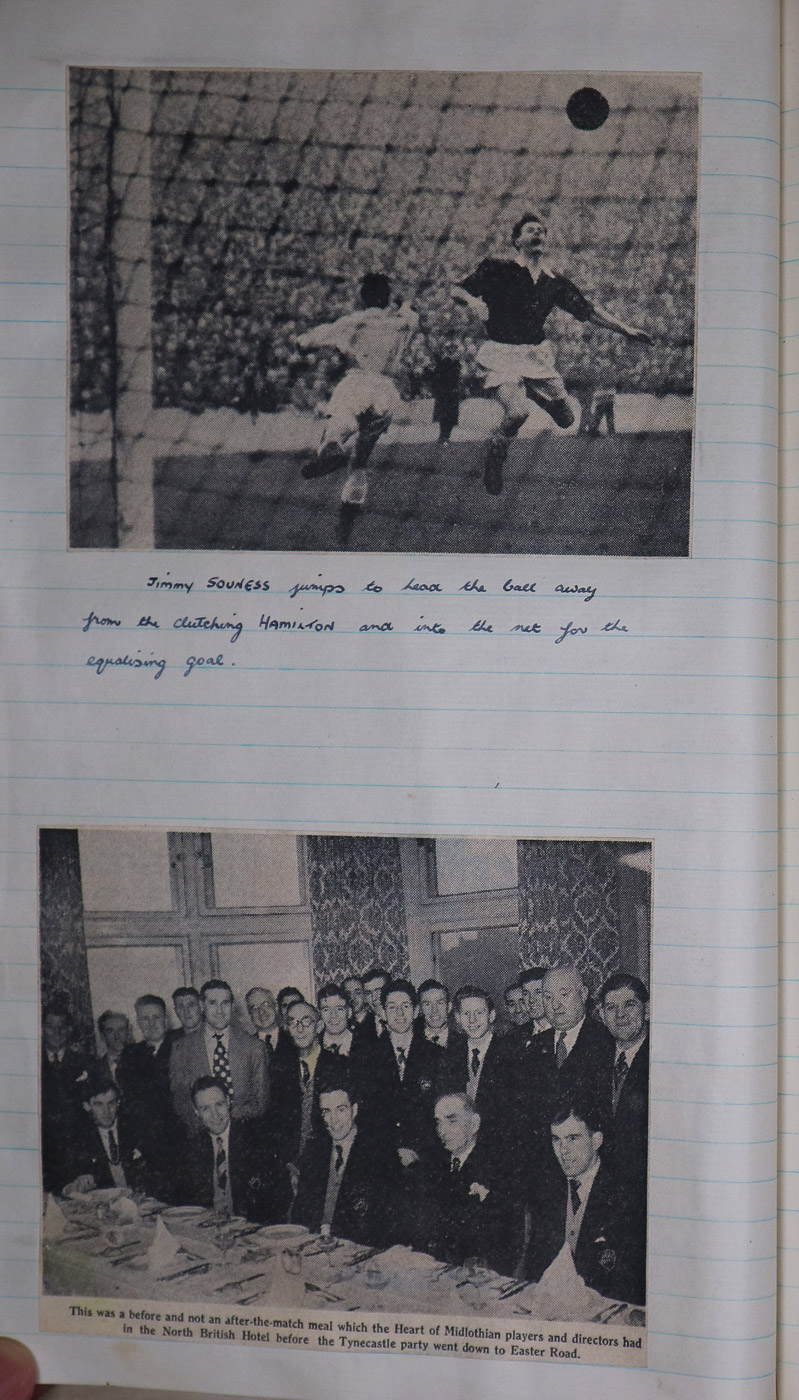 Jimmy SOUNESS jumps to head the ball away
from the clutching HAMILTON and into the net for the
equalising goal.
This was a before and not an after-the-match meal which the Heart of Midlothian players and directors had
in the North British Hotel before the Tynecastle party went down to Easter Road.